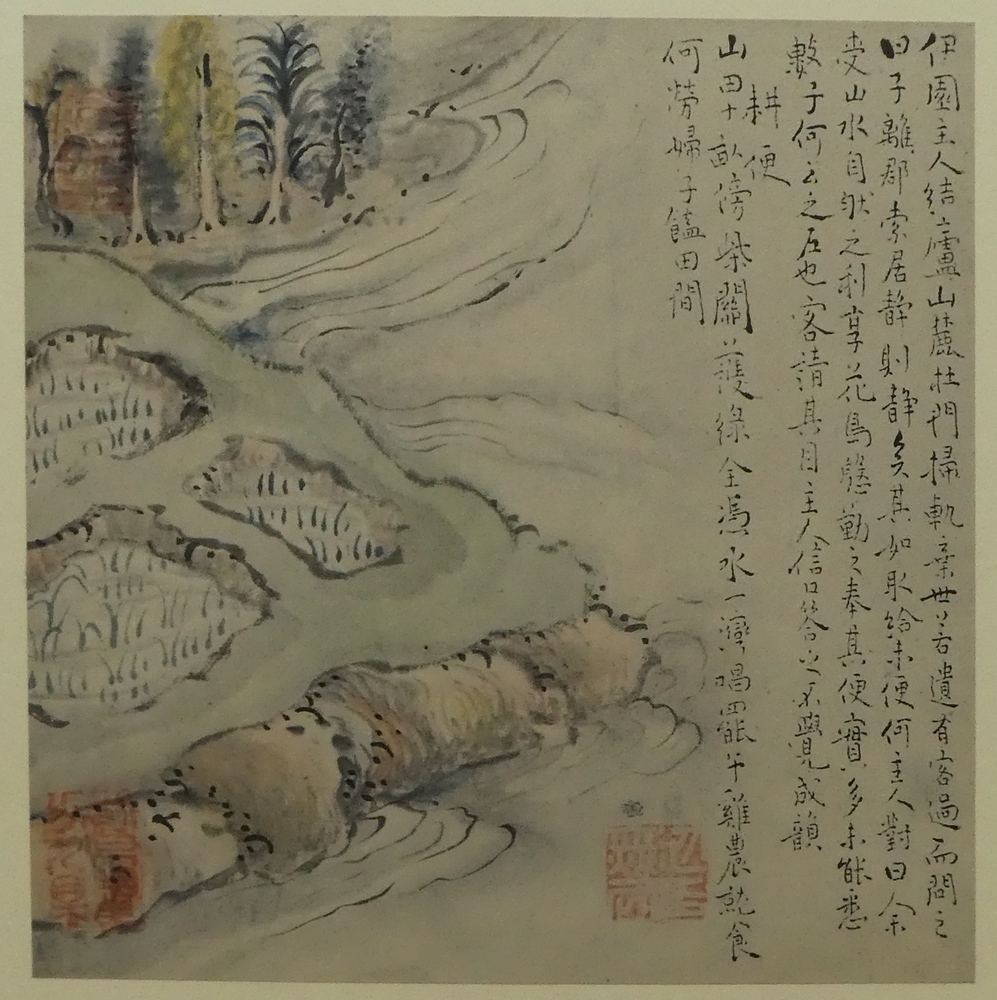 伊園主人結廬山麓杜門掃軌棄世若遺有客過而問之
曰子離郡索居静則静矣其如取給未便何主人對曰余
受山水自然之利享花鳥慇勤之奉其便實多未能悉
數子何云之左也客請其目主人信口答之不覺成韻
耕便
山田十畝傍柴關護綠全憑水一灣唱罷午雞農就食
何勞婦子饁田間